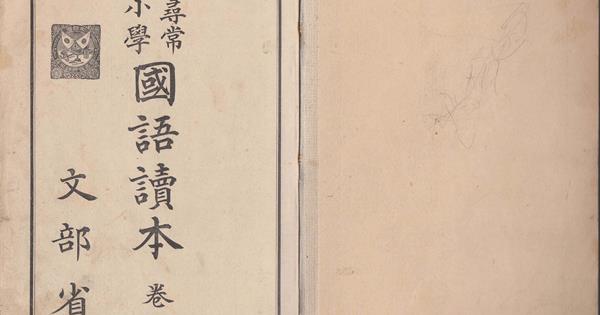 尋常
小學
國語讀本 卷
文部省